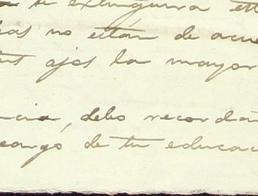 se extinguiera est
as no están de acue
ojos la mayor
ncia, debo recordar
cargo de tu educac